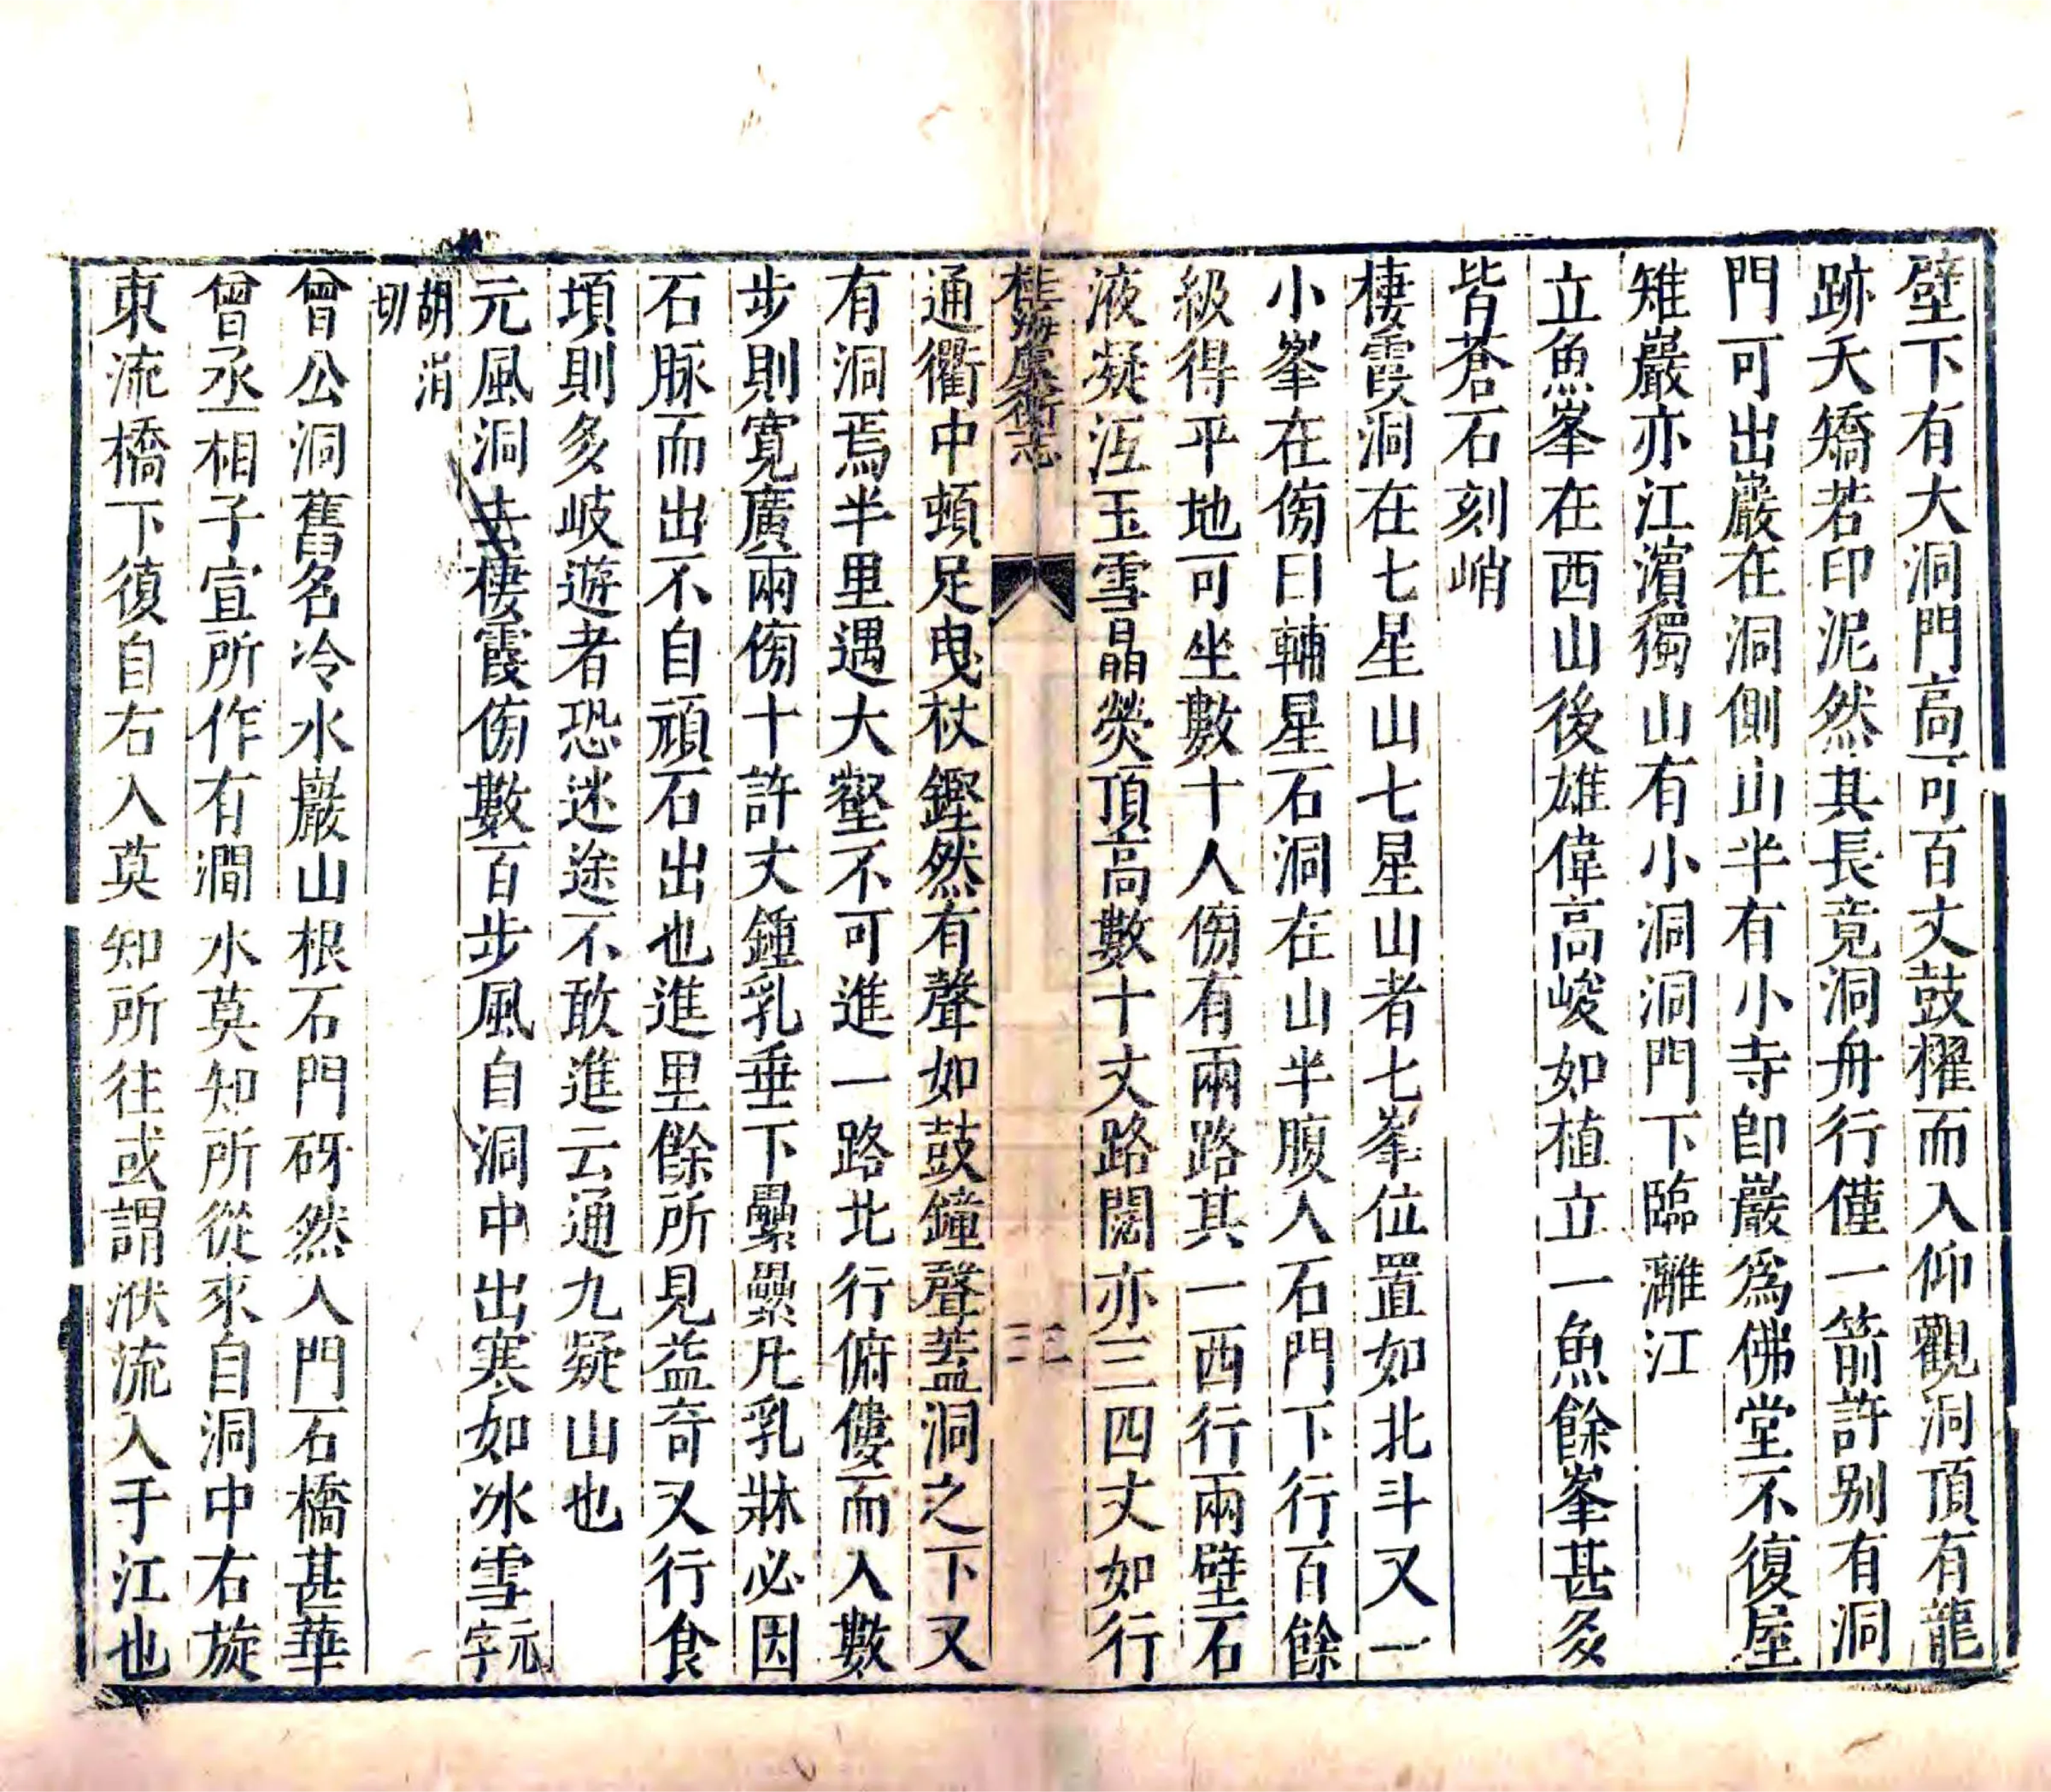 壁下有大洞門高可百丈鼓櫂而入仰觀洞頂有龍
跡夭矯若印泥然其長竟洞舟行僅一箭許别有洞
門可出巖在洞側山半有小寺卽巖爲佛堂不復屋
雉巖亦江濵獨山有小洞洞門下臨灕江
立魚峯在西山後雄偉高峻如植立一魚餘峯甚多
皆蒼石刻峭
棲霞洞在七星山七星山者七峯位置如北斗又一
小峯在傍曰輔星石洞在山半腹入石門下行百餘
級得平地可坐數十人傍有兩路其一西行兩壁石
液凝沍玉雪晶熒頂高數十丈路闊亦三四丈如行
桂海虞衡志
三
通衢中頓足曳杖鏗然有聲如鼓鐘聲蓋洞之下又
有洞焉半里遇大壑不可進一路北行俯僂而入數
步則寛廣兩傍十許丈鍾乳垂下纍纍凡乳牀必因
石脉而出不自頑石出也進里餘所見益奇又行食
頃則多岐遊者恐迷途不敢進云通九疑山也
元風洞去棲霞傍數百步風自洞中出寒如冰雪元字
胡涓切
曾公洞舊名冷水巖山根石門砑然入門石橋甚華
曾丞相子宣所作有澗水莫知所從來自洞中右旋
東流橋下復自右入莫知所往或謂洑流入于江也